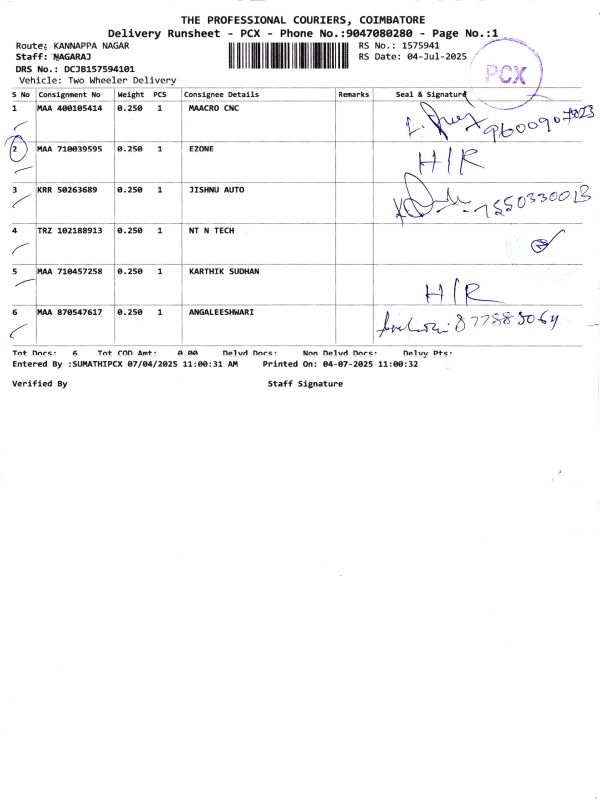 THE PROFESSIONAL COURIERS, COIMBATORE
Delivery Runsheet - PCX - Phone No.:9047080280 - Page No.:1
Route: KANNAPPA NAGAR RS No.: 1575941
Staff: NAGARAJ RS Date: 04-Jul-2025
DRS No.: DCJB157594101
Vehicle: Two Wheeler Delivery
PCX
S No Consignment No Weight PCS Consignee Details Remarks Seal & Signature
1 MAA 400105414 0.250 1 MAACRO CNC
2 MAA 710039595 0.250 1 EZONE H/R
3 KRR 50263689 0.250 1 JISHNU AUTO 7550330013
4 TRZ 102188913 0.250 1 NT N TECH
5 MAA 710457258 0.250 1 KARTHIK SUDHAN H/R
6 MAA 870547617 0.250 1 ANGALEESHWARI
Tot Docs: 6 Tot COD Amt: 0.00 Delvd Docs: Non Delvd Docs: Delvy Pts:
Entered By :SUMATHIPCX 07/04/2025 11:00:31 AM Printed On: 04-07-2025 11:00:32
Verified By Staff Signature